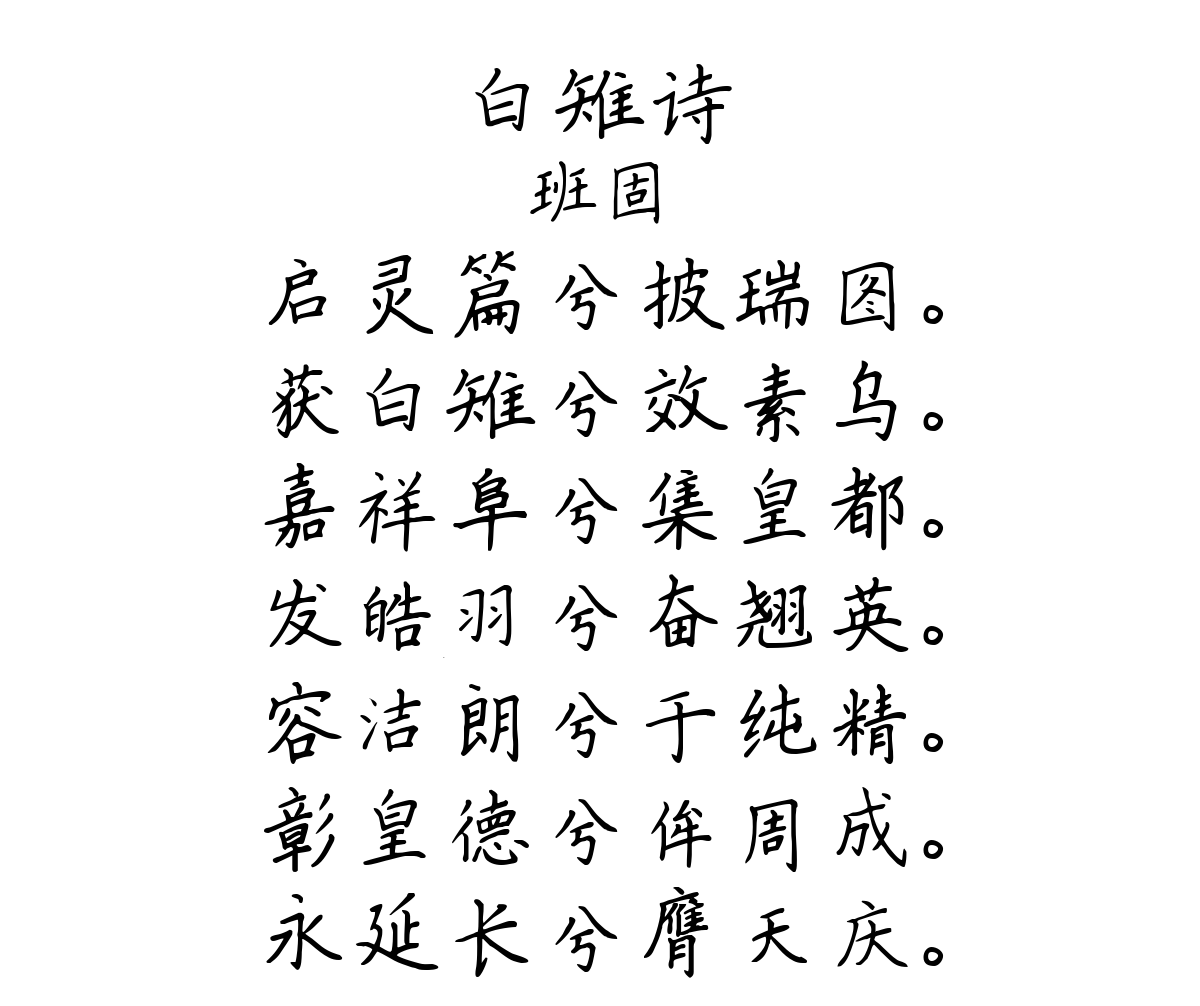 白雉诗
班固
启灵篇兮披瑞图。
获白雉兮效素乌。
嘉祥阜兮集皇都。
发皓羽兮奋翘英。
容洁朗兮于纯精。
彰皇德兮侔周成。
永延长兮膺天庆。